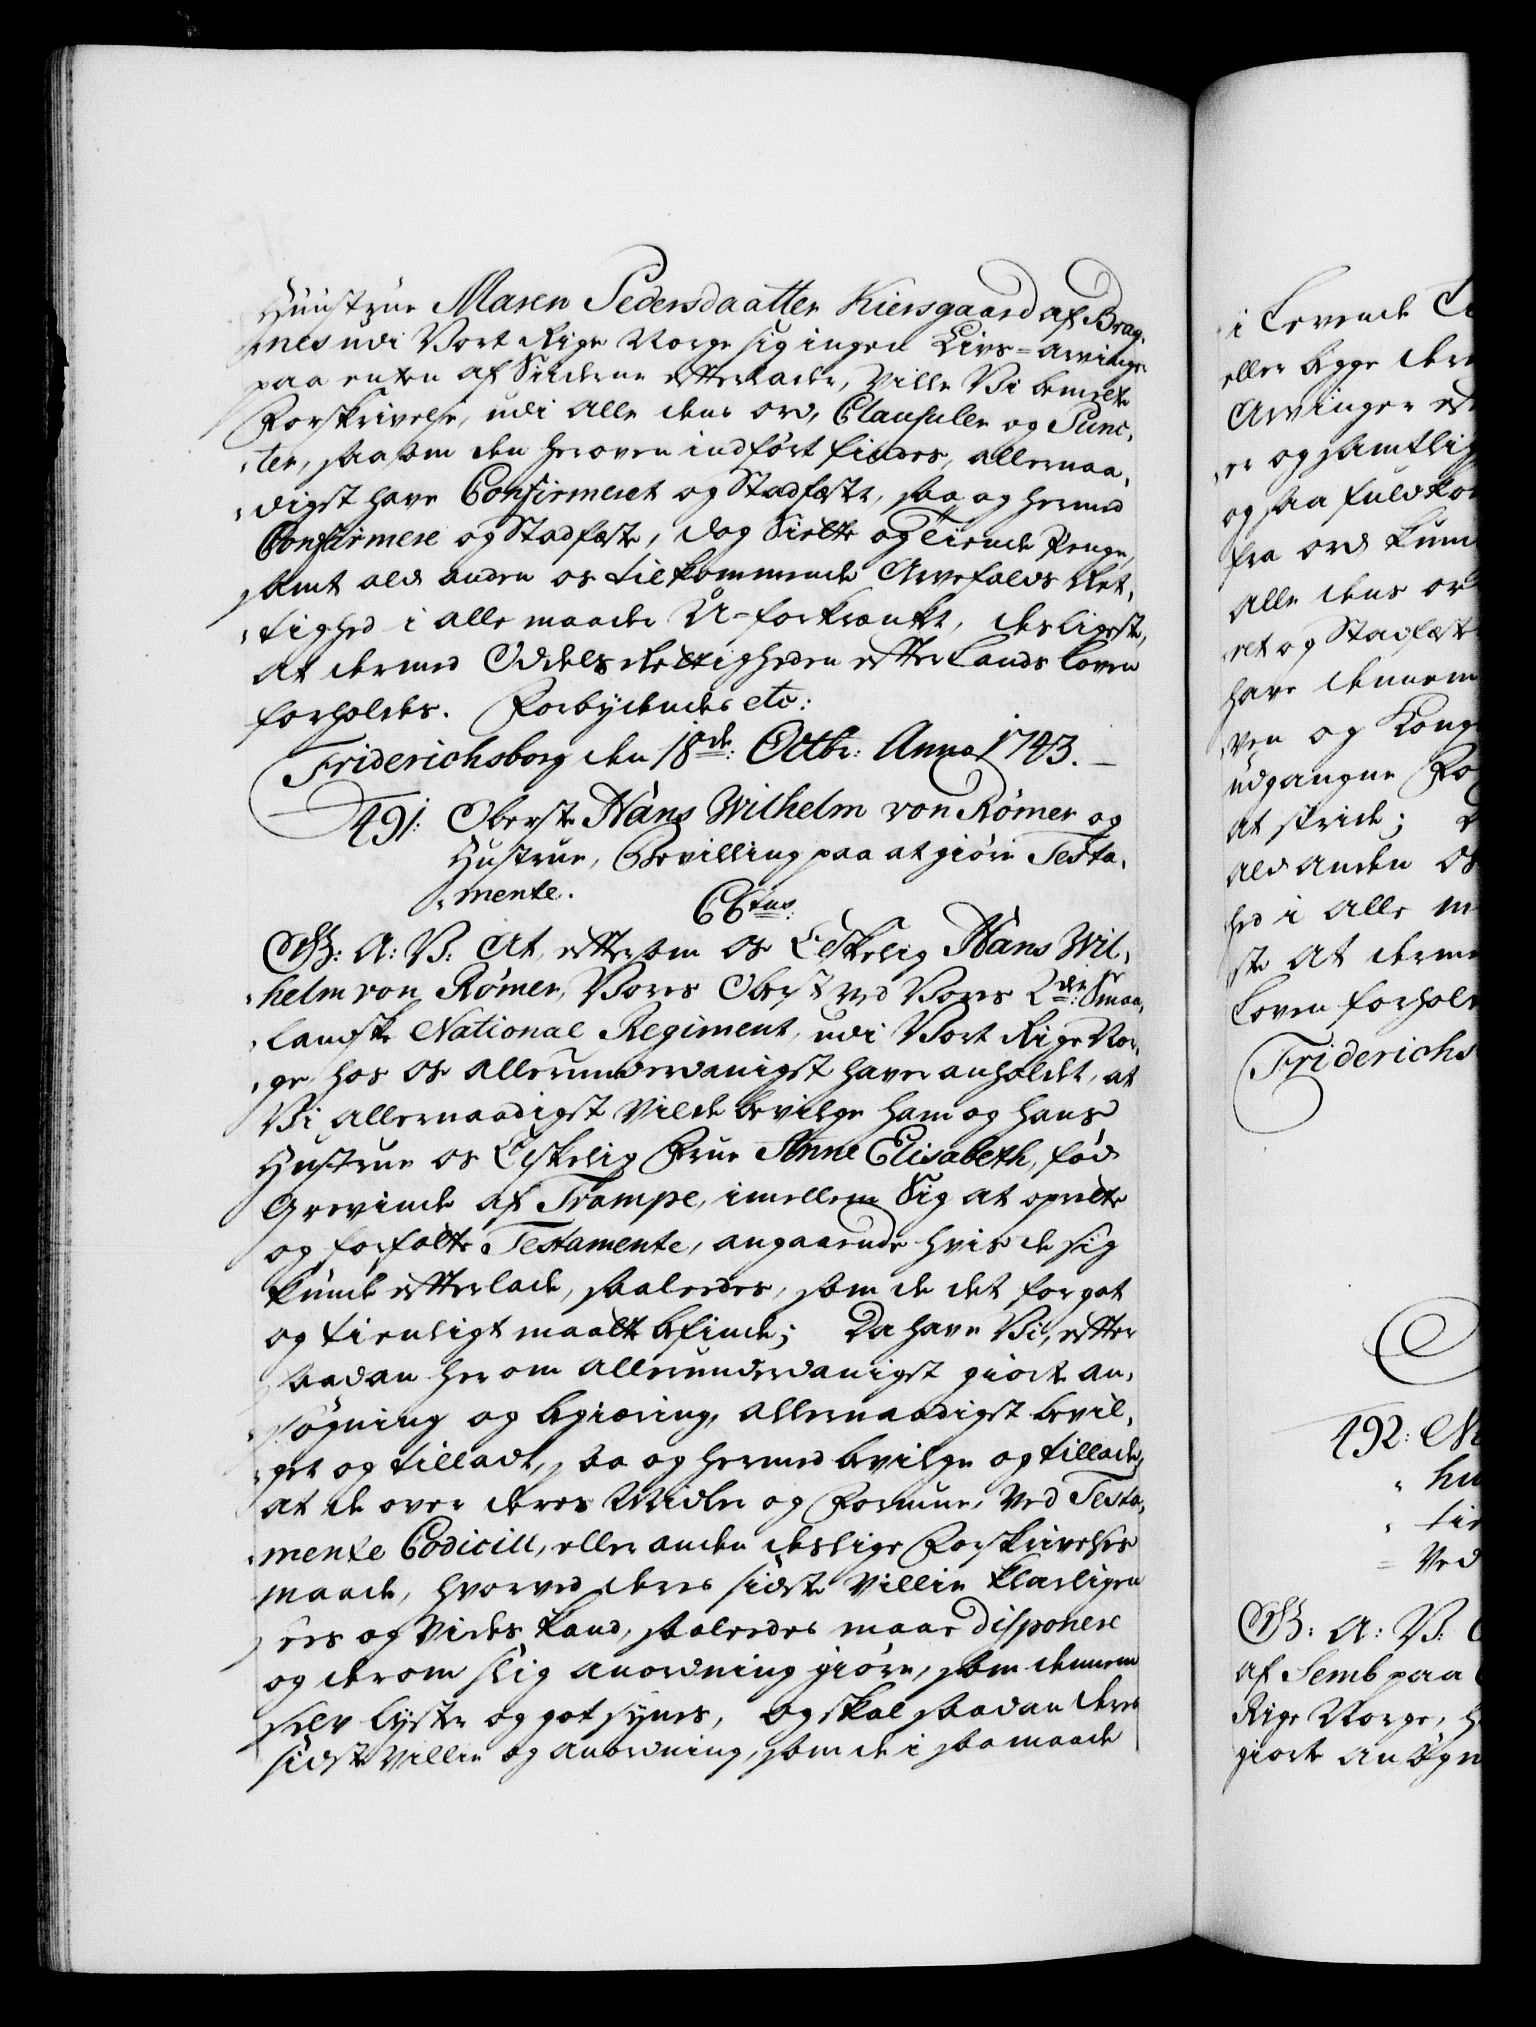 Hüüstrue Maren Pedersdaatter Kiersgaard af Brag,
,nes udi Vort Rige Norge sig ingen Livs-arvinger
paa enten af Siderne efterlader, Ville Vi bemelte
Forskrivelse, udi alle dens ord, Clausuler og Punc,
,ter, saasom den heroven indført findes, allernaa,
,digst have Confirmeret og Stadfæste, saa og hermed
Confirmere og Stadfæste, dog Siette og Tiende Penge,
samt ald anden os tilkommende Arvefalds Ret,
,tighed i alle maader U-forkrænket, desligeste,
at dermed Odels Rettigheden efter Lands Loven
forholdes. Forbydendes etc:
Friderichsborg den 18de: Octbr: Anno 1743. –
491: Oberste Hans Wilhelm von Römer og
Hustrue, Bevilling paa at giøre Testa,
,mente.
CCtus:
GB: A: V: At, eftersom os Elskelig Hans Wil,
,helm von Römer, Vores Oberst ved Vores 2den: Smaa,
,landske National Regiment, udi Vort Rige Nor,
,ge, hos os allerunderdanigst haver anholdet, at
Vi allernaadigst vilde bevilge ham og hans
Hustrue os Elskelig Frue Anne Elisabeth, fød
Grevinde af Trampe, imellem Sig at oprette
og forfatte Testamente, angaaende hvis de sig
kunde efterlade, saaledes, som de det for got
og tienligt maatte befinde; Da have Vi, efter
saadan herom allerunderdanigst giort an,
,søgning og begiæring, allernaadigst bevil,
,get og tilladt, saa og hermed bevilge og tillade,
at de over deres Midler og Formue, ved Testa,
,mente Codicill, eller anden deslige Forskrivelses
maade, hvorved deres sidste Villie klarligen
sees og Vides kand, saaledes maae disponere
og derom slig anordning giøre, som dennem
selv lyster og got synes, og skal saadan deres
sidste Villie og anordning, som de i saa maade
i Levende
eller begge
Arvinger
er og samtlig
og saa fuldkom
fra ord
alle dens or
ret og Stadfæste
have
ven og Kong
udgangne Fo
at stride;
ald anden os
hed i alle m
ste at derme
Loven forhold
Friderichs
492:
Ved
GB: A: V:
af Semb paa
Rige Norge, h
giorte ansøgn